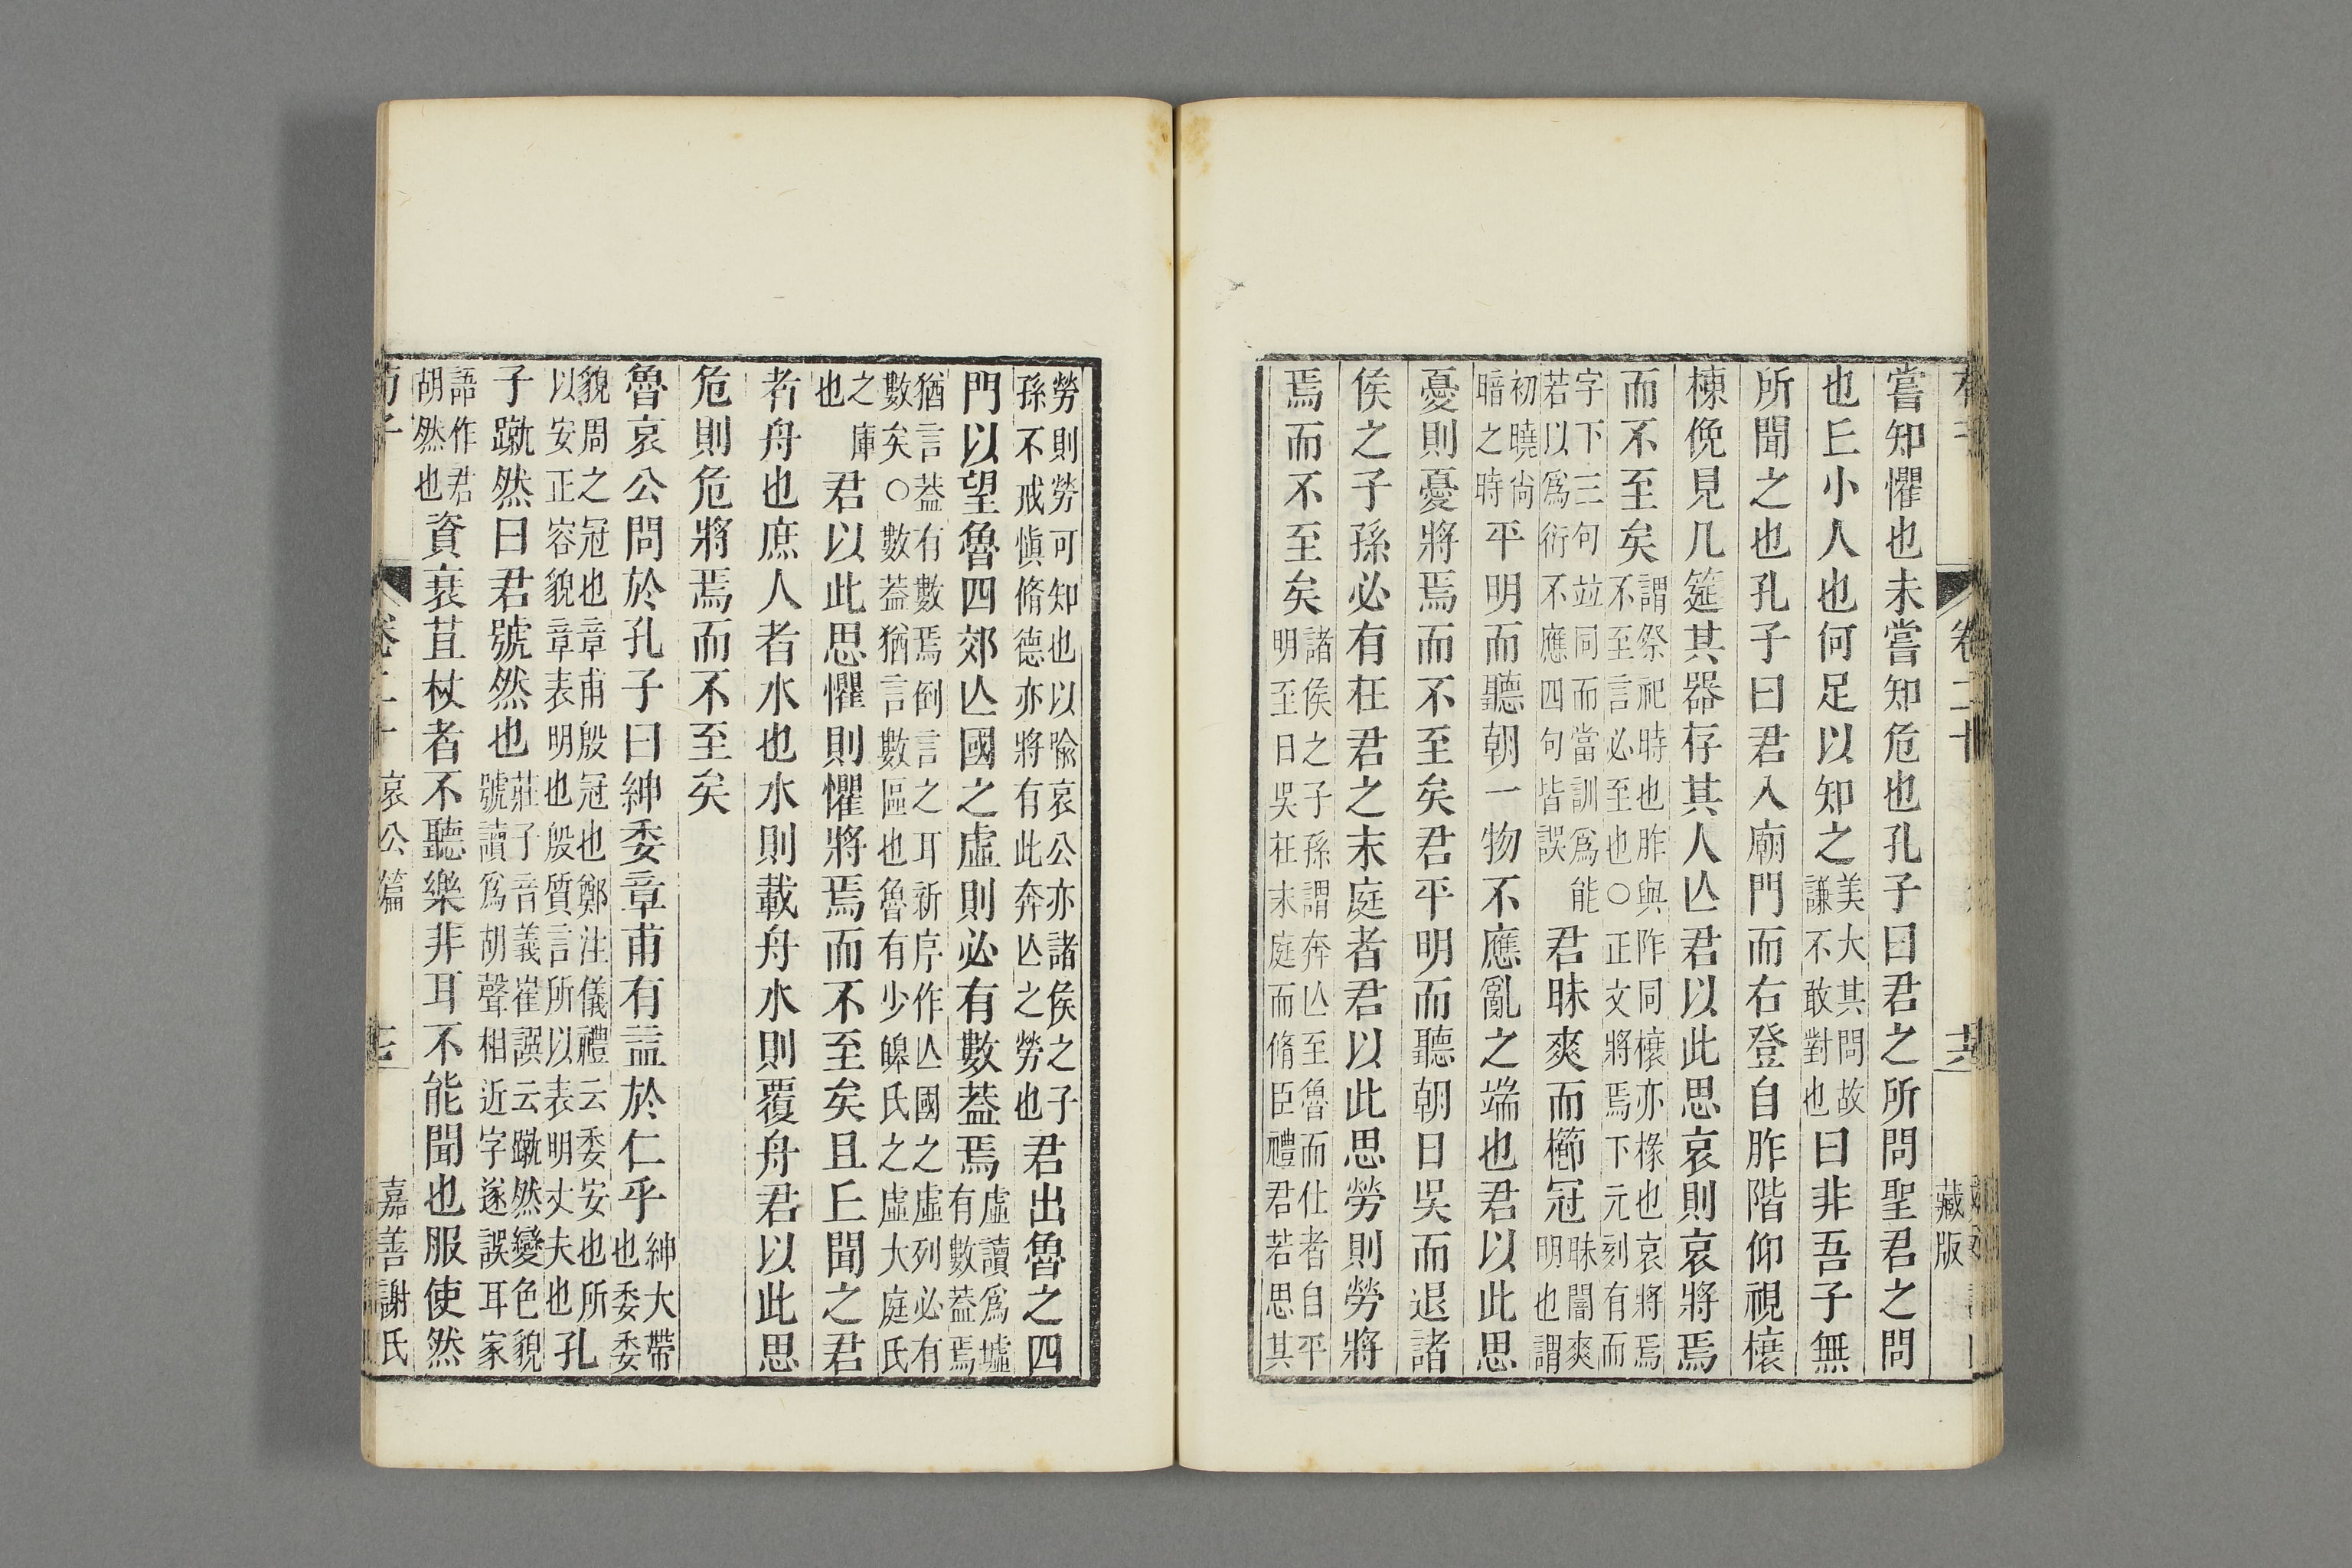 卷二十 藏版
嘗知懼也未嘗知危也孔子曰君之所問聖君之問
也丘小人也何足以知之美大其問故謙不敢對也曰非吾子無
所聞之也孔子曰君入廟門而右登自胙階仰視榱
棟俛見几筵其器存其人亾君以此思哀則哀將焉
而不至矣謂祭祀時也胙與阼同榱亦椽也哀將焉不至言必至也○正文將焉下元刻有而
字下三句竝同而當訓爲能若以爲衍不應四句皆誤君昧爽而櫛冠昧闇爽明也謂
初曉尚暗之時平明而聽朝一物不應亂之端也君以此思
憂則憂將焉而不至矣君平明而聽朝日吳而退諸
侯之子孫必有在君之末庭者君以此思勞則勞將
焉而不至矣諸侯之子孫謂奔亾至魯而仕者自平明至日吳在末庭而脩臣禮君若思其
勞則勞可知也以喻哀公亦諸侯之子孫不戒愼脩德亦將有此奔亾之勞也君出魯之四
門以望魯四郊亾國之虛則必有數葢焉虛讀爲墟有數葢焉
猶言葢有數焉倒言之耳新序作亾國之虛列必有數矣○數葢猶言數區也魯有少皞氏之虛大庭氏
之庫也君以此思懼則懼將焉而不至矣且丘聞之君
者舟也庶人者水也水則載舟水則覆舟君以此思
危則危將焉而不至矣
魯哀公問於孔子曰紳委章甫有益於仁乎紳大帶也委委
貌周之冠也章甫殷冠也鄭注儀禮云委安也所以安正容貌章表明也殷質言所以表明丈夫也孔
子蹴然曰君號然也莊子音義崔譔云蹴然變色貌號讀爲胡聲相近字遂誤耳家
語作君胡然也資衰苴杖者不聽樂非耳不能聞也服使然
哀公篇 嘉善謝氏